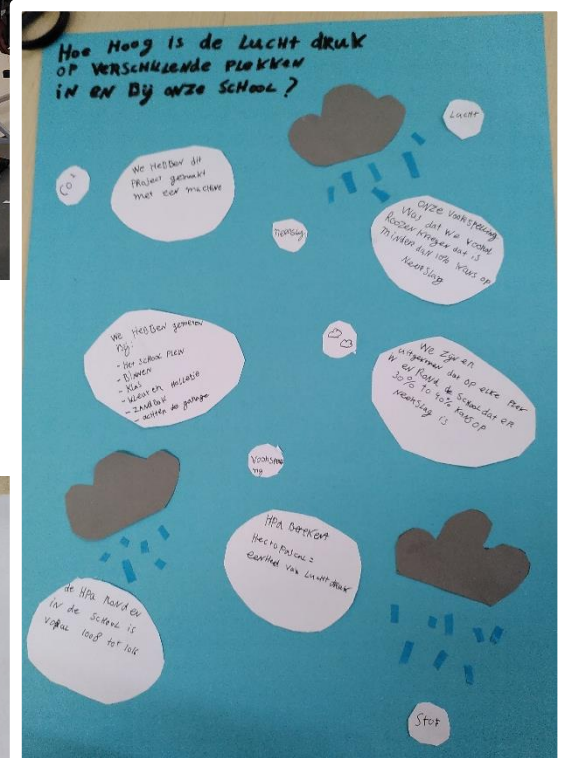 Hoe Hoog is de Lucht druk
op verschillende plekken
in en Bij onze School?
Lucht
CO²
We Hebben dit
Project gemaakt
met een machine
onze voorspelling
Was dat we vooral
kriegen dat is
minder dan 10% kans op
Neerslag
We Hebben gemeten
bij:
- Het school plein
- Binnen
- Klas
- ZANDBAK
- achter de garage
We zijn er
uitgekomen dat op elke plek
in en Rond de School dat er
30% to 40% kans op
Neerslag is
HPA Betekent
HectoPascal=
eenheid van Luchtdruk
de HPa Rond en
in de School is
vooral 1008 tot
Stof